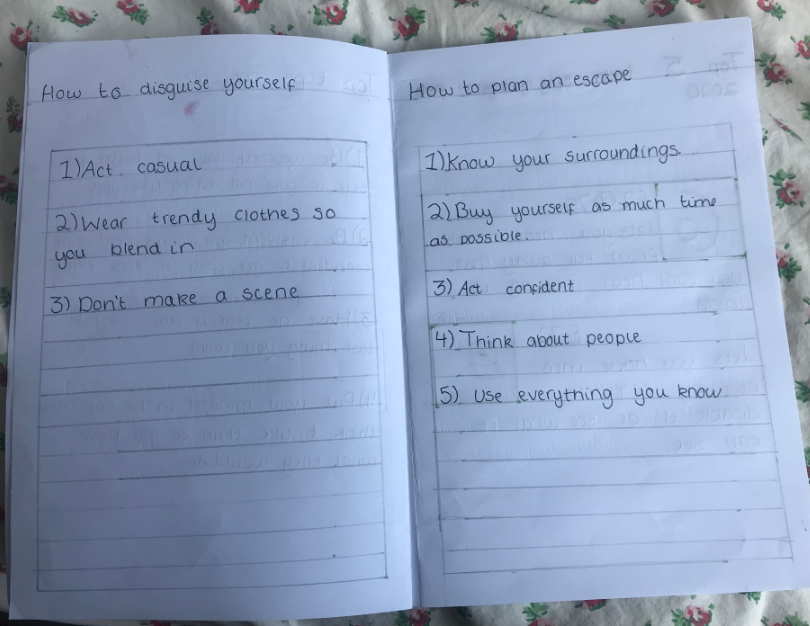 How to disguise yourself
1) Act casual
2) Wear trendy clothes so
you blend in
3) Don't make a scene
How to plan an escape
1) Know your surroundings.
2) Buy yourself as much time
as possible.
3) Act confident
4) Think about people
5) Use everything you know